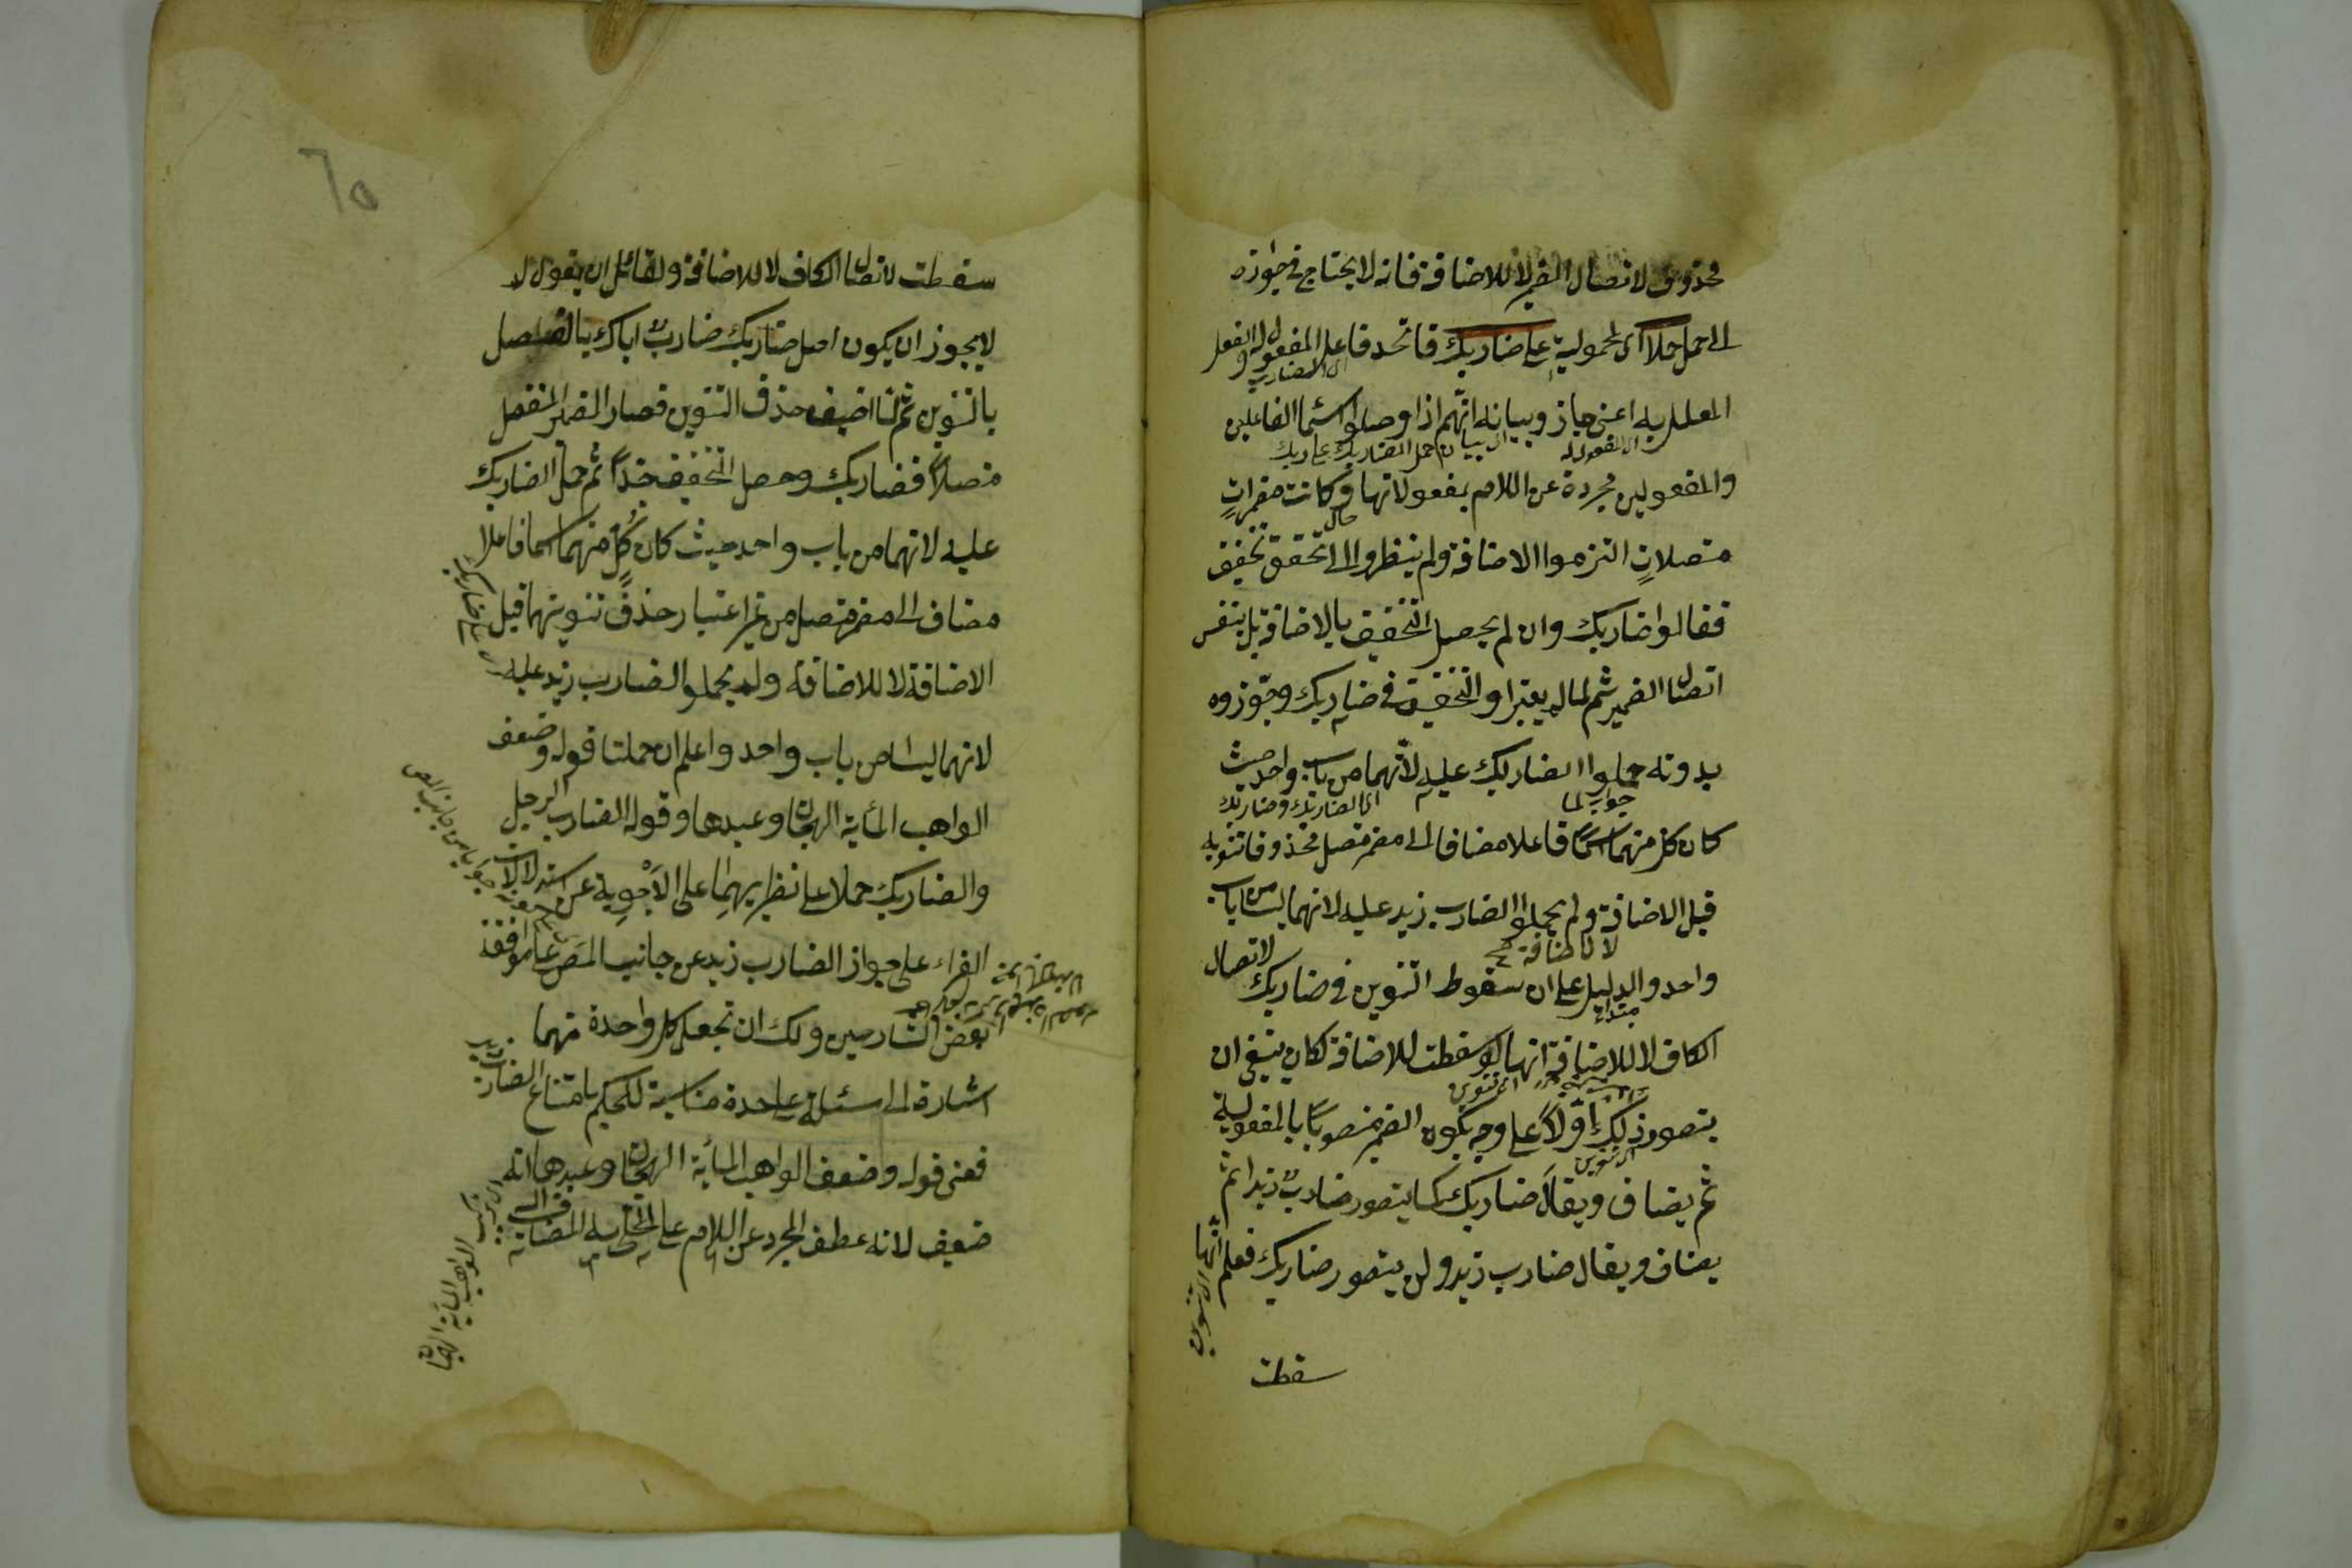 محذوف لاتصال الضمير لا للاضافة فانه لا يحتاج في جوازه
الى حمل حملا اى لمحمولية على ضاربك فاتحد فاعل المفعول له والفعل
اى الضارب
المعلل به اعنى جاز وبيانه انهم اذا وصلوا اسماء الفاعلين
اى المفعول له
اى بيان حمل الضاربك على ضاربك
والمفعولين مجردة عن اللام بمفعولاتها وكانت مضمرات
حال
متصلات التزموا الاضافة ولم ينظروا الى تحقق تخفيف
فقالوا ضاربك وان لم يحصل التخفيف بالاضافة بل بنفس
اتصال الضمير ثم لما لم يعتبروا التخفيف في ضاربك وجوزوه
بدونه حملوا الضاربك عليه لانهما من باب واحد حيث
جواب لما
اى الضاربك وضاربك
كان كل منهما اسما فاعلا مضافا الى مضمر متصل محذوفا تنوينه
قبل الاضافة ولم يحملوا الضارب زيد عليه لانهما ليسا من باب
لا للاضافة صح
واحد والدليل على ان سقوط التنوين في ضاربك لاتصال
مبتداء
الكاف لا للاضافة انها لو سقطت للاضافة لكان ينبغى ان
اى التنوين
يتصور ذلك اولا على وجه يكون الضمير منصوبا بالمفعولية
اى التنوين
ثم يضاف ويقال ضاربك كما يتصور ضارب زيدا ثم
يضاف ويقال ضارب زيد ولن يتصور ضاربك فعلم انها
اى التنوين
سقطت
٦٥
سقطت لاتصال الكاف لا للاضافة ولقائل ان يقول لا
لا يجوز ان يكون اصل ضاربك ضارب اياك بالفصل
بالتنوين ثم لما اضيف حذف التنوين فصار الضمير المنفصل
متصلا فضاربك وحصل التخفيف جدا ثم حمل الضاربك
عليه لانهما من باب واحد حيث كان كل منهما اسما فاعلا
على ضاربك
مضاف الى مضمر متصل من غير اعتبار حذف تنوينهما قبل
الاضافة لا للاضافة ولم يحملوا الضارب زيد عليه
لانهما ليسا من باب واحد واعلم ان حملنا قوله وضعف
الواهب المائة الهجان وعبدها وقوله الضارب الرجل
والضاربك حملا على نظيريهما على الاجوبة عن استدلالات
جوابا من جانب المص
الفراء على جواز الضارب زيد عن جانب المص على موافقة
بعض الشارحين ولك ان تجعل كل واحدة منهما
اشارة الى مسئلة على حدة مناسبة للحكم بامتناع الضارب زيد
فمعنى قوله وضعف الواهب المائة الهجان وعبدها انه
ضعيف لانه عطف المجرد عن اللام على المحلى به المضاف اليه
اى تركيب الواهب المائة الهجان